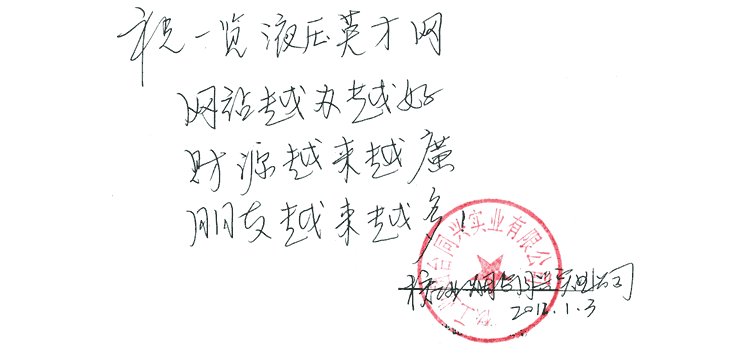 祝一览液压英才网
网站越办越好
财源越来越廣
朋友越来越多!
台同兴实业有限公司
烟台同兴实业公司
2012.1.3